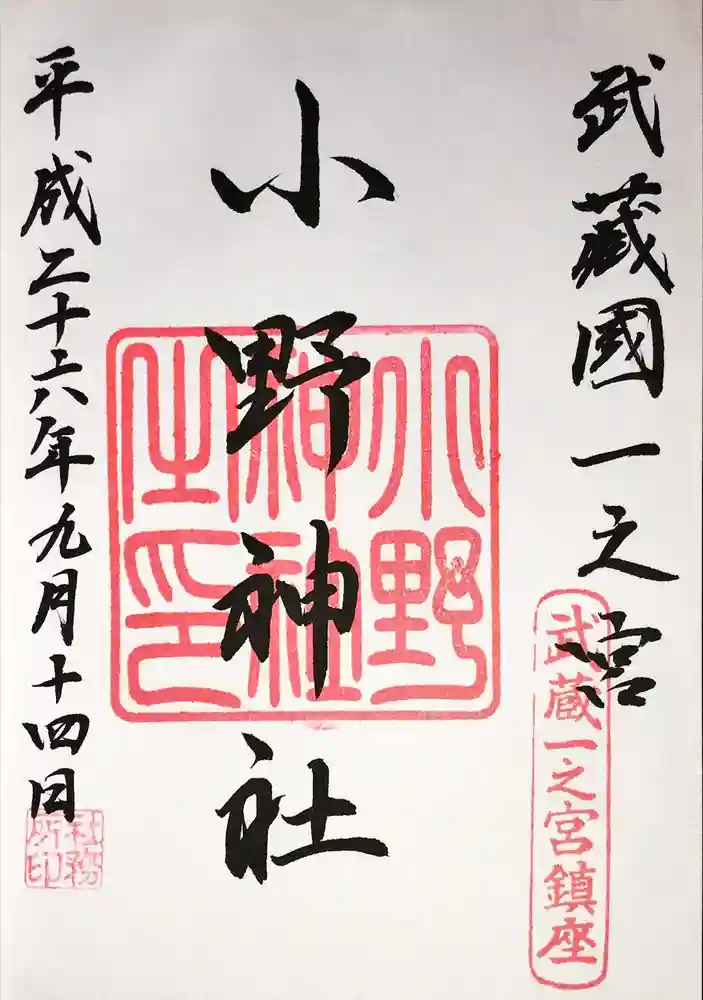 武蔵國一之宮
武蔵一之宮鎮座
小野神社
小野
神社
之印
平成二十六年九月十四日
社務
所印